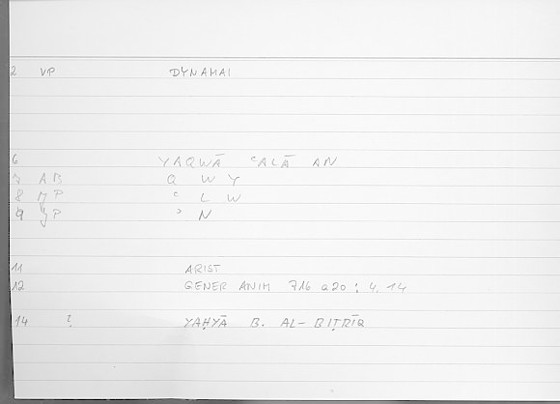 2 VP DYNAMAI
6 YAQWĀ ʿALĀ AN
7 AB Q W Y
8 YP ʿ L W
9 YP ʾ N
11 ARIST
12 GENER ANIM 716 a20 : 4. 14
14 ? YAḤYĀ B. AL-BIṬRĪQ